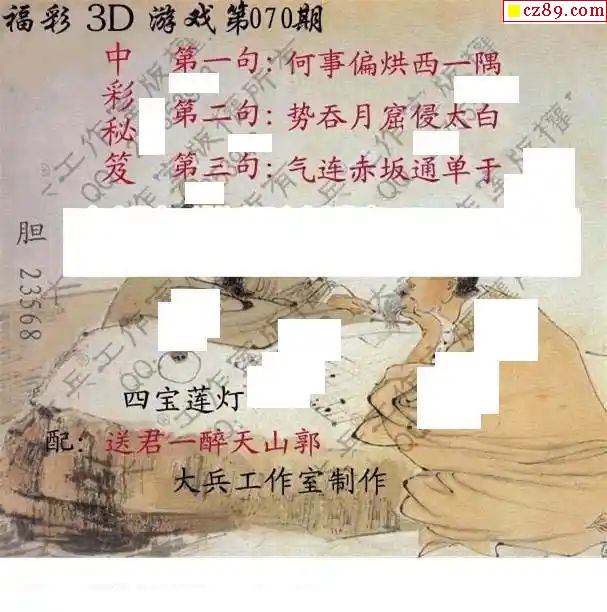 cz89.com
福彩 3D 游戏第070期
中彩秘笈
第一句：何事偏烘西一隅
第二句：势吞月窟侵太白
第三句：气连赤坂通单于
胆 23568
四宝莲灯
配：送君一醉天山郭
大兵工作室制作